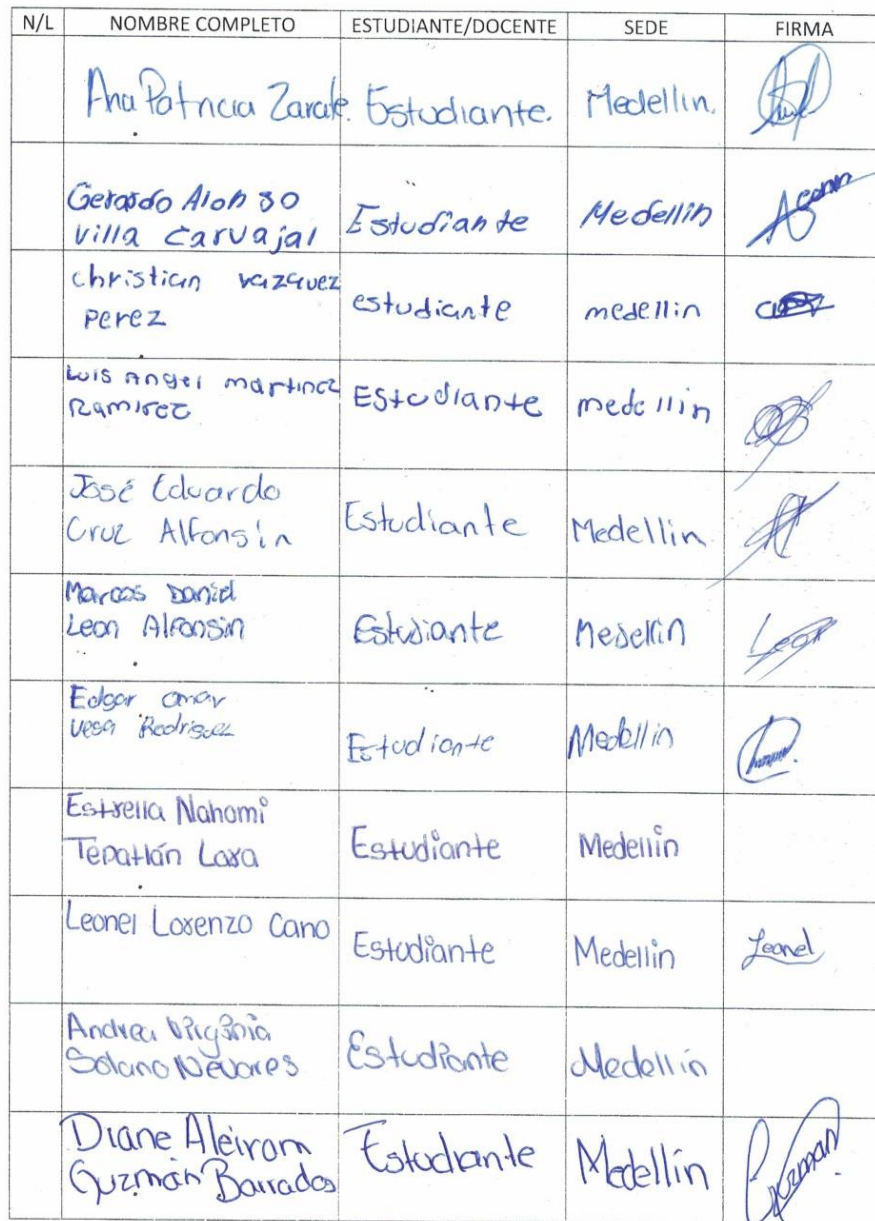 N/L NOMBRE COMPLETO ESTUDIANTE/DOCENTE SEDE FIRMA
Ana Patricia Zarate. Estudiante. Medellin.
Gerardo Alonso
Villa Carvajal Estudiante Medellin
christian vazquez
perez estudiante medellin
Luis Angel martinez
Ramirez Estudiante medellin
José Eduardo
Cruz Alfonsin Estudiante Medellin
Marcos Daniel
Leon Alfonsin Estudiante Medellin Leon
Edgar omar
Vega Rodriguez Estudiante Medellin
Estrella Nahomi
Tepatlán Lara Estudiante Medellin
Leonel Lorenzo Cano Estudiante Medellin Leonel
Andrea Virginia
Solano Nevares Estudiante Medellin
Diane Aleiram
Guzmán Barrados Estudiante Medellin Guzman